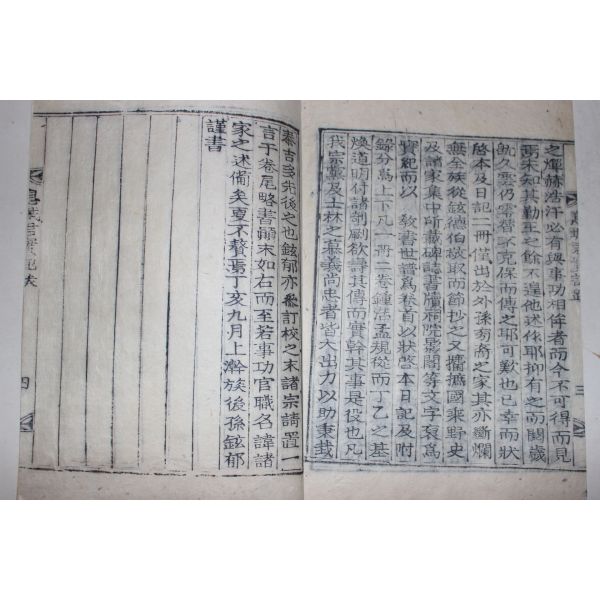 之煇赫浩汗必有與事功相侔者而今不可得而見
焉未知其勤王之餘不遑他述𠋣耶抑有之而閱歲
旣久雲仍零替不克保而傳之耶可歎也已幸而狀
啓本及日記二冊僅出於外孫芻裔之家其亦斷爛
無全族從鉉德伯攷取而節抄之又攟摭國乘野史
及諸家集中所載碑誌書牘祠院影閣等文字裒爲
實紀而以 敎書世譜爲卷首以狀啓本日記及附
錄分爲上下凡一冊二卷鍾浩孟規從而丁乙之基
煥道明付諸剞劂欲壽其傳而實幹其事是役也凡
我宗黨及士林之慕義尚忠者皆大出力以助秉哉
三
泰吉多先後之也鉉郁亦參訂校之末諸宗請置一
言于卷尾略書顚末如右而至若事功官職名諱諸
家之述備矣更不贅焉丁亥九月上澣族後孫鉉郁
謹書
四